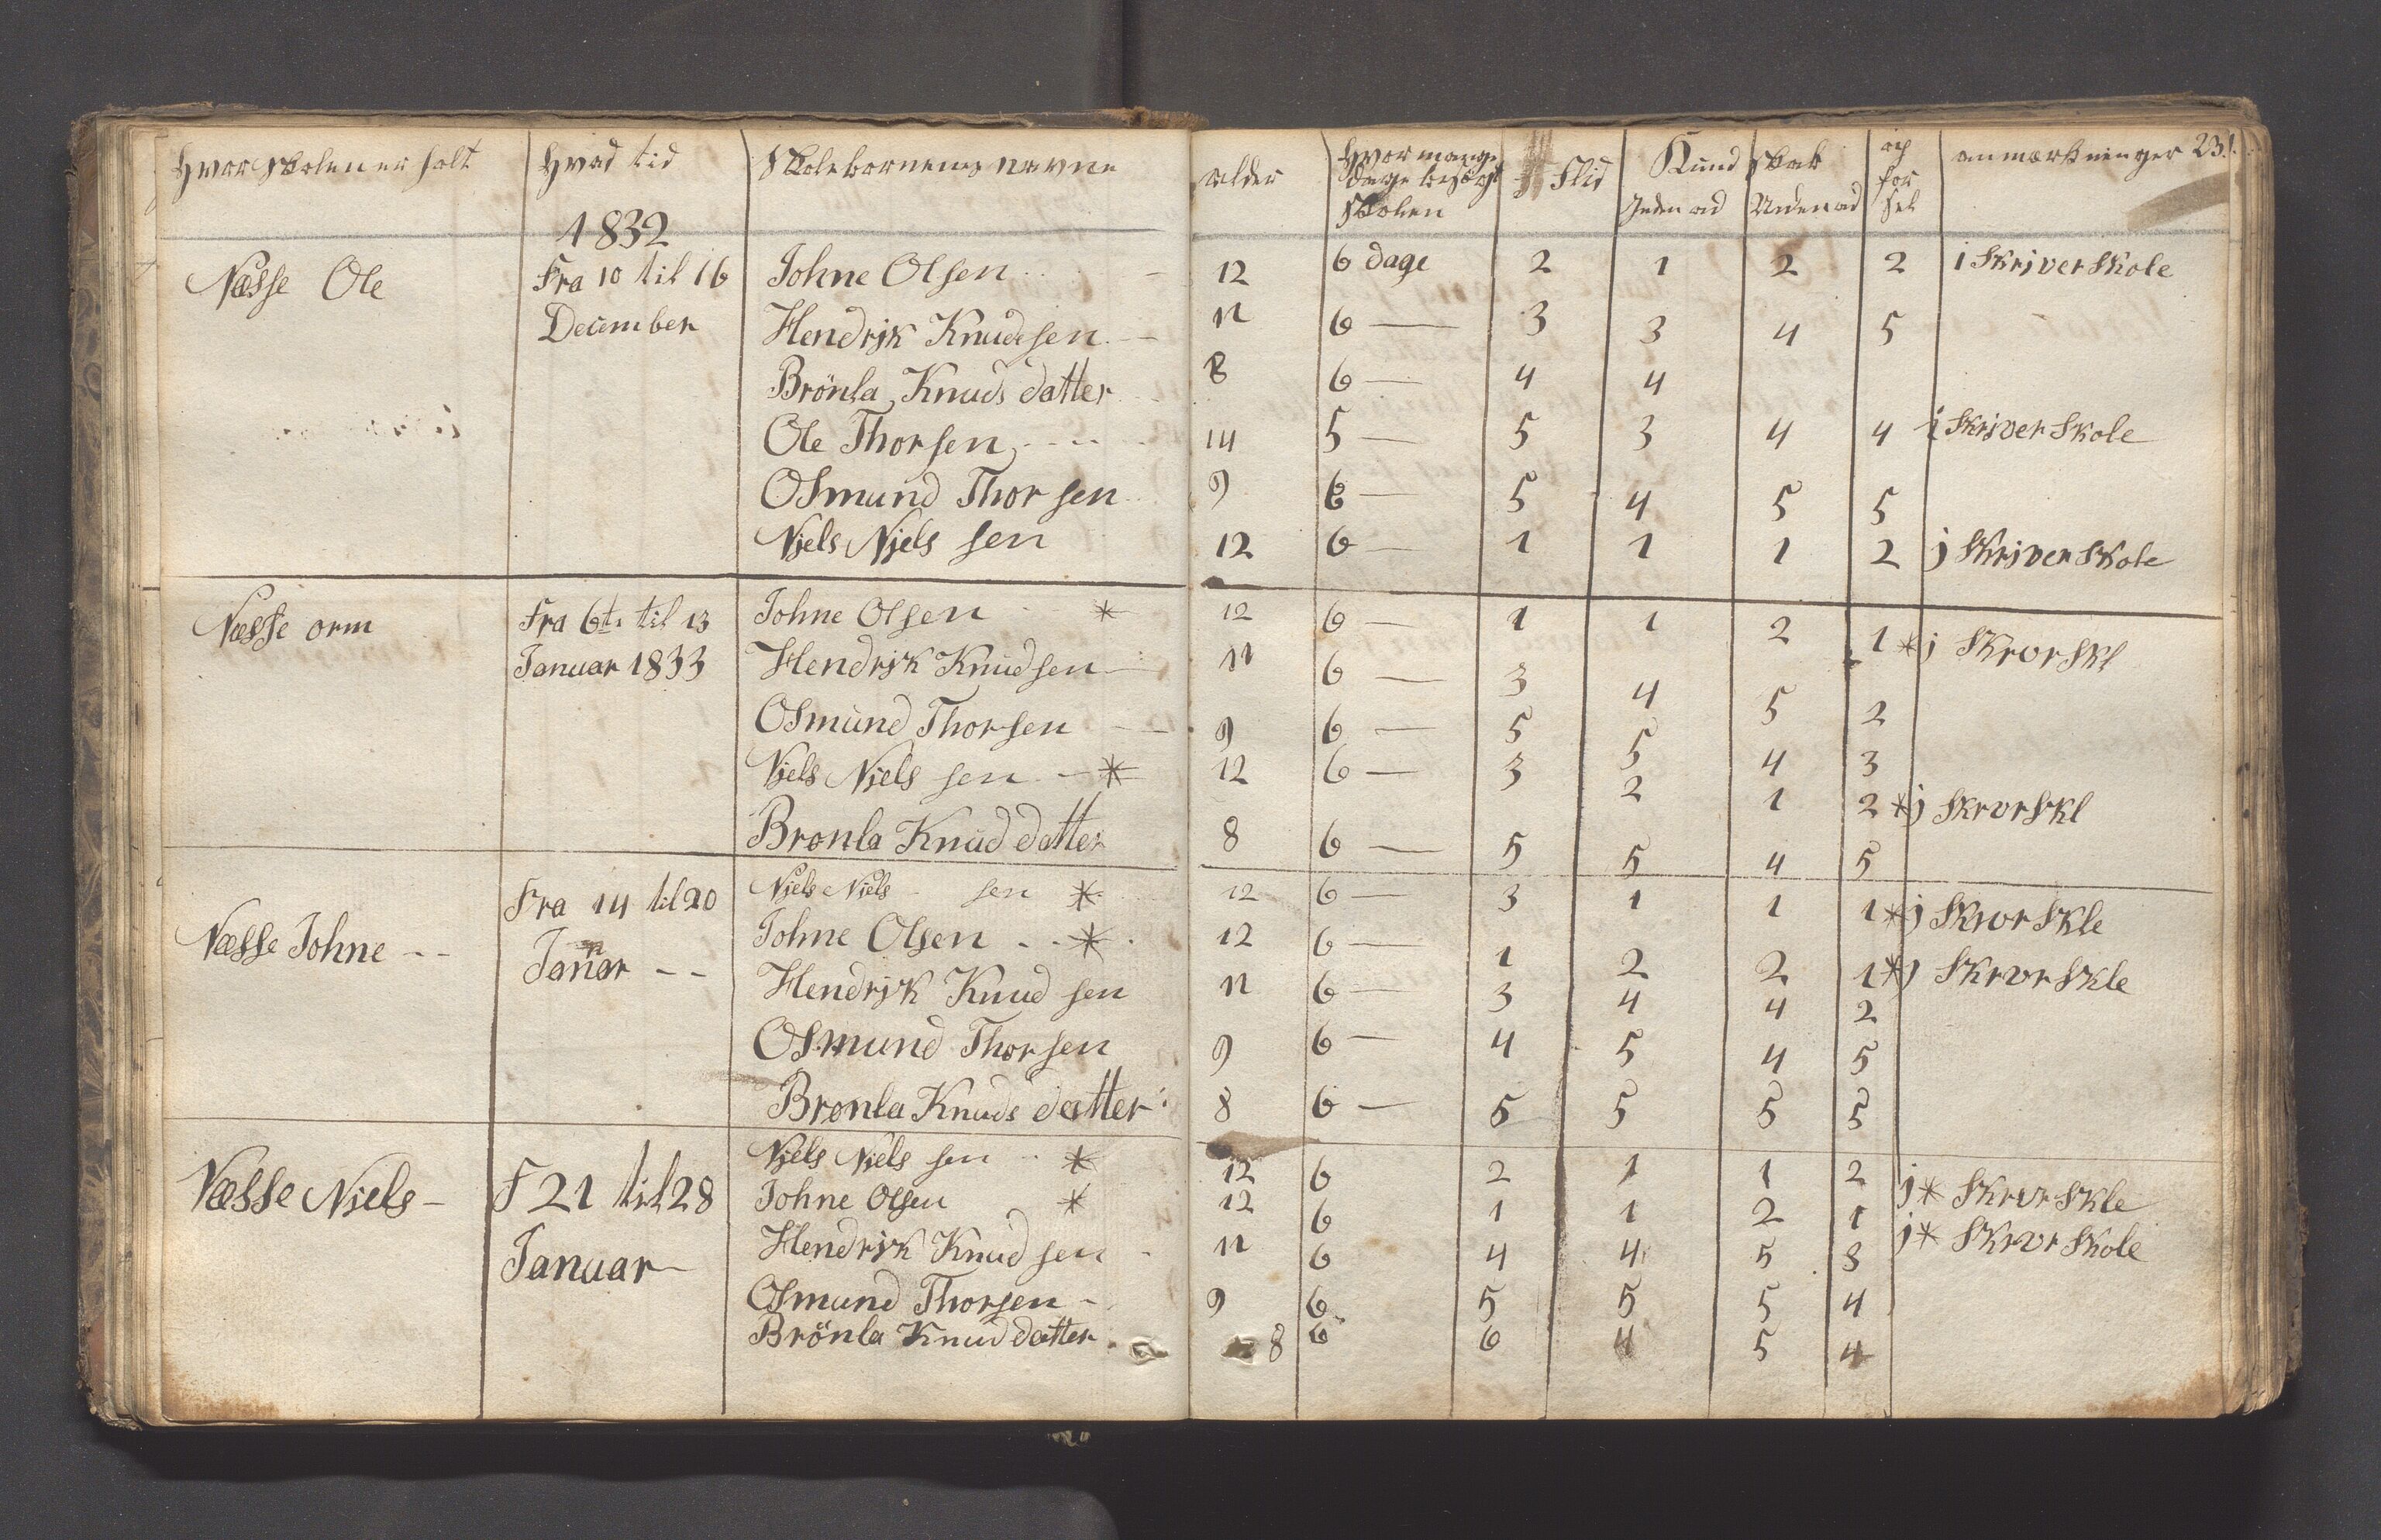 Hvor Skolen er holt Hvad tid Skolebornenes navne alder Hvor mange Dage besögt Skolen Flid Kundskab Inden ad Uden ad op for sel anmærkninger 231.
1832
Næsse Ole Fra 10 til 16 Johne Olsen 12 6 dage 2 1 2 2 i Skriver Skole
December Hendrik Knudsen 11 6 — 3 3 4 5
Brönla Knuds datter 8 6 — 4 4
Ole Thorsen 14 5 — 5 3 4 4 i Skriver Skole
Osmund Thorsen 9 6 — 5 4 5 5
Njels Njels sen 12 6 — 1 1 1 2 j Skriver Skole
Næsse orm Fra 6te til 13 Johne Olsen * 12 6 — 1 1 2 1 * j Skrvr Skl
Januar 1833 Hendrik Knudsen 11 6 — 3 4 5 2
Osmund Thorsen 9 6 — 5 5 4 3
Njels Njels sen — * 12 6 — 3 2 1 2 * j Skrvr Skl
Bronla Knud datter 8 6 — 5 5 4 5
Fra 14 til 20 Njels Niels sen * 12 6 — 3 1 1 1 * j Skrvr Skle
Næsse Johne -- Janar -- Johne Olsen - - * 12 6 — 1 2 2 1 * j Skrvr Skle
Hendrik Knud sen 11 6 — 3 4 4 2
Osmund Thorsen 9 6 — 4 5 4 5
Bronla Knuds datter 8 6 — 5 5 5 5
Njels Njels sen * 12 6 2 1 1 2 j * Skrvr Skle
Næsse Njels - F 21 til 28 Johne Olsen * 12 6 1 1 2 1 j * Skrvr Skole
Januar Hendrik Knud sen 11 6 4 4 5 3
Osmund Thorsen - 9 6 5 5 5 4
Brönla Knud datter 8 6 6 4 5 4